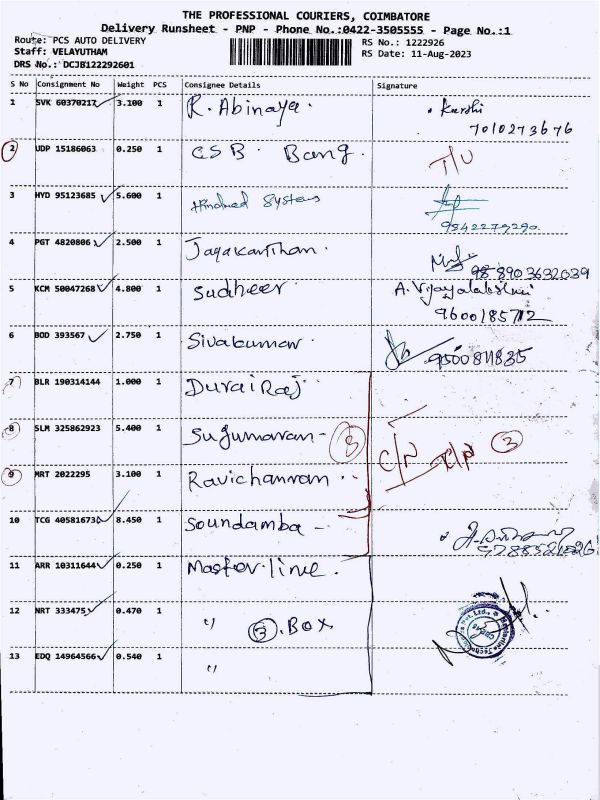 THE PROFESSIONAL COURIERS, COIMBATORE
Delivery Runsheet - PNP - Phone No.:0422-3505555 - Page No.:1
Route: PCS AUTO DELIVERY RS No.: 1222926
Staff: VELAYUTHAM RS Date: 11-Aug-2023
DRS No.: DCJB122292601
S No Consignment No Weight PCS Consignee Details Signature
1 SVK 60370217 3.100 1 R. Abinaya. Karthi
7010273676
2 UDP 15186063 0.250 1 CSB. Bang.
3 HYD 95123685 5.600 1 Systems
9842279290
4 PGT 4820806 2.500 1 Jayakanthan.
5 KCM 50047268 4.800 1 Sudheer A. Vijayalakshmi
9600185712
6 BOD 393567 2.750 1 Sivakumar. 9500811835
7 BLR 190314144 1.000 1 Durai Raj
8 SLM 325862923 5.400 1 Sugumaran - 8 3
9 MRT 2022295 3.100 1 Ravichanran
10 TCG 40581673 8.450 1 Soundamba -
11 ARR 10311644 0.250 1 Master line.
12 NRT 333475 0.470 1 " 3. BOX
13 EDQ 14964566 0.540 1 "